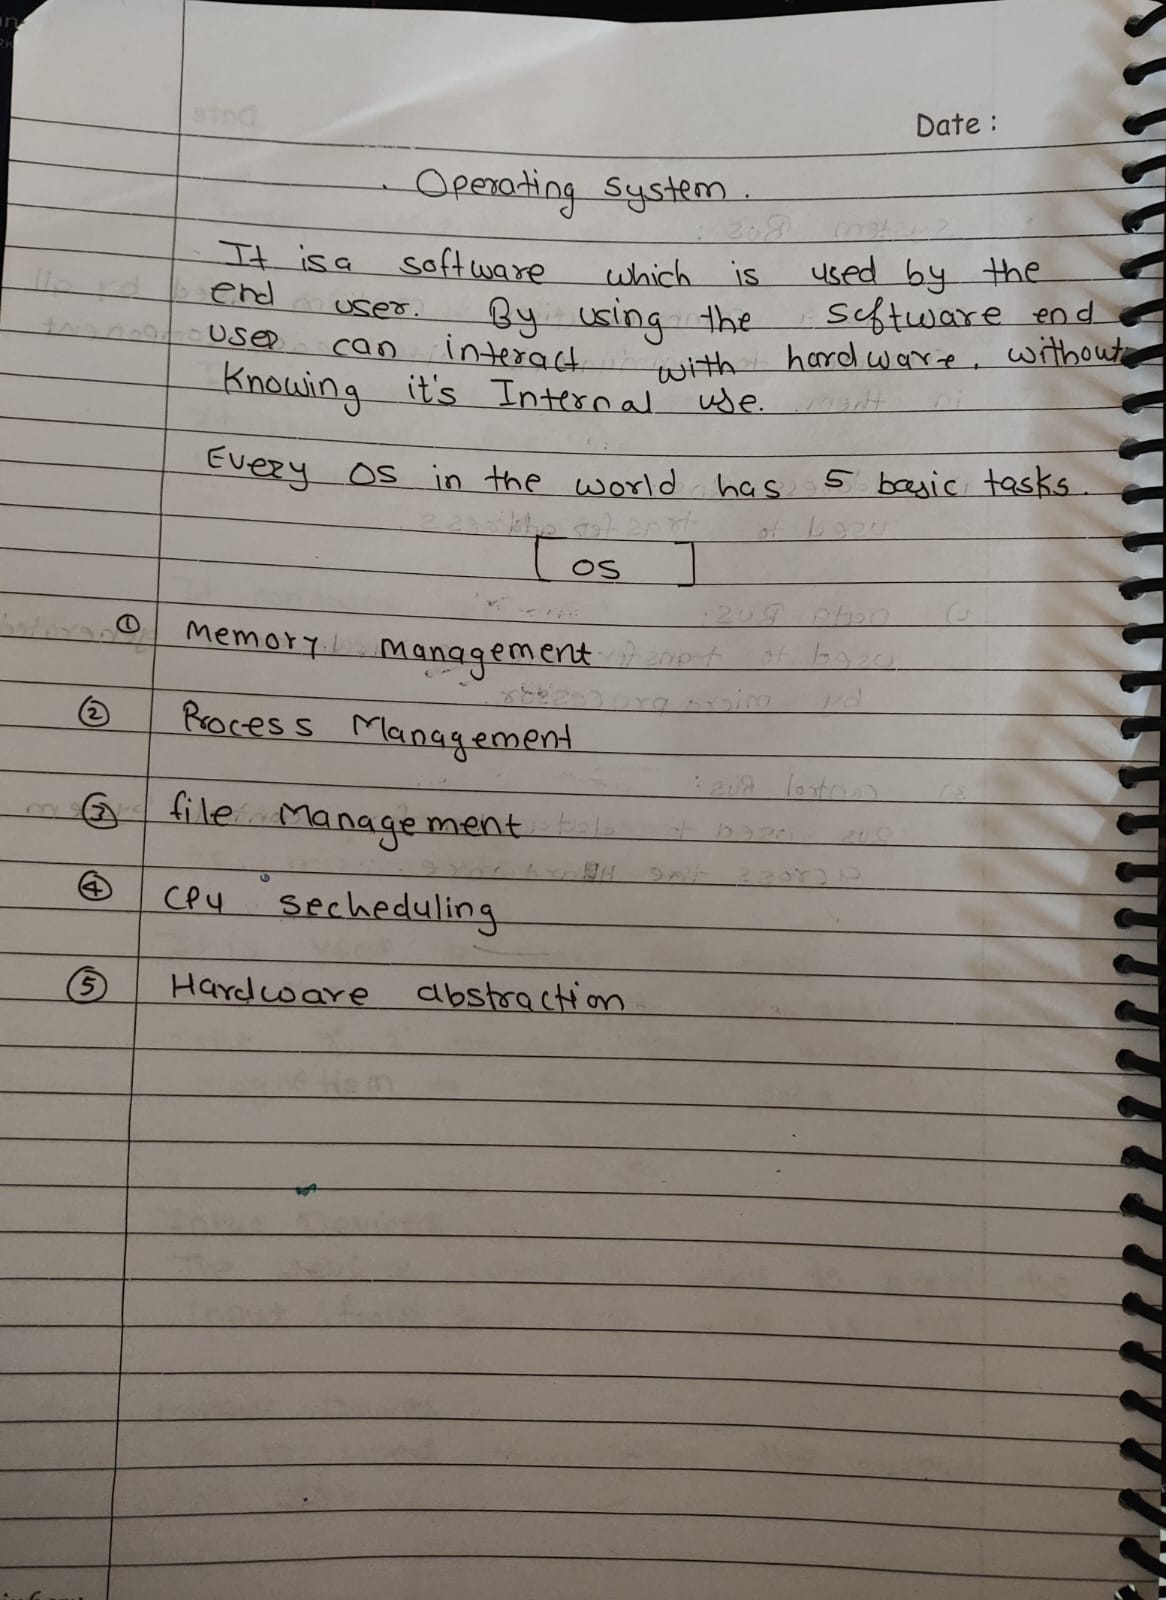 Date :
Operating system.
It is a software which is used by the
end user. By using the software end
user can interact with hardware, without
Knowing it's Internal use.
Every OS in the world has 5 basic tasks.
[ OS ]
① Memory Management
② Process Management
③ file Management
④ CPU secheduling
⑤ Hardware abstraction